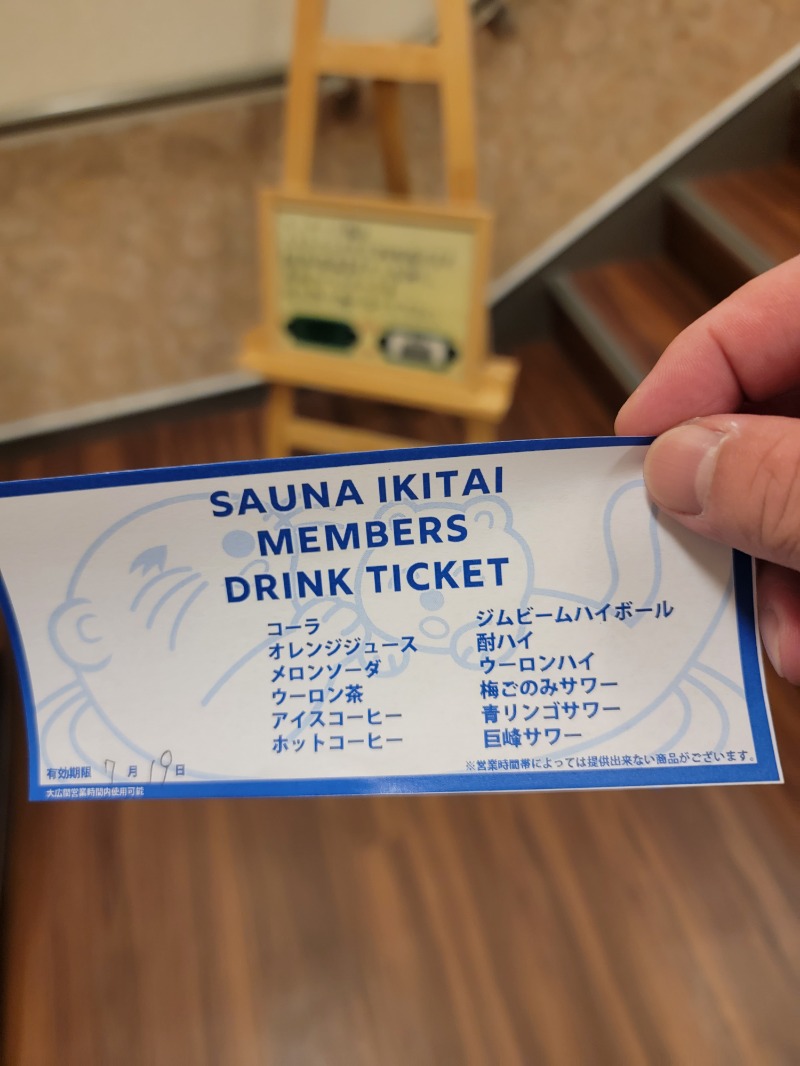 SAUNA IKITAI
MEMBERS
DRINK TICKET
コーラ
オレンジジュース
メロンソーダ
ウーロン茶
アイスコーヒー
ホットコーヒー
ジムビームハイボール
酎ハイ
ウーロンハイ
梅ごのみサワー
青リンゴサワー
巨峰サワー
有効期限 7月19日
※営業時間帯によっては提供出来ない商品がございます。
大広間営業時間内使用可能